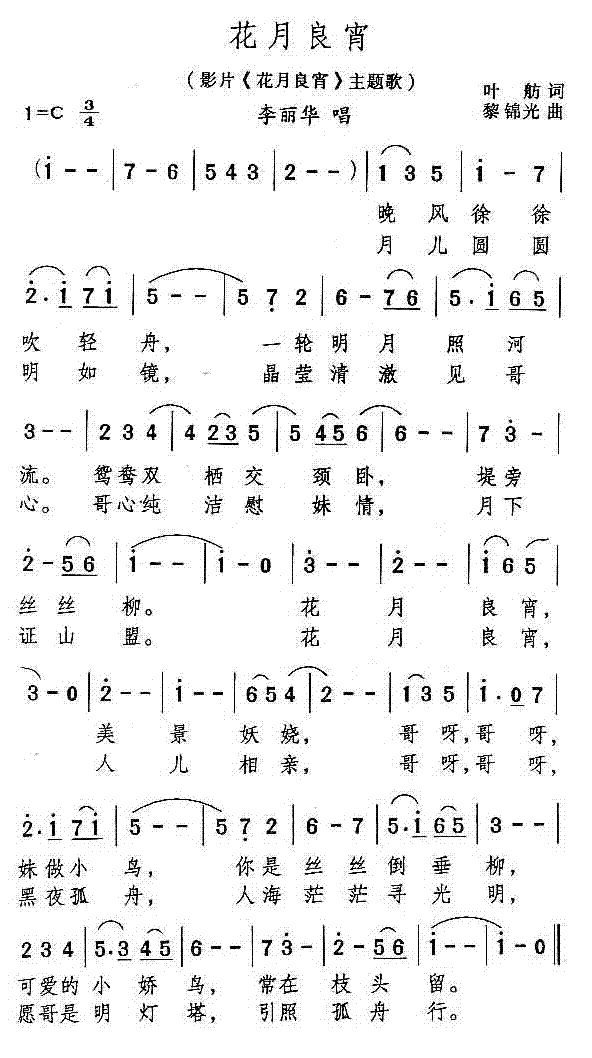 花月良宵
(影片《花月良宵》主题歌)
1=C 3/4
李丽华 唱
叶舫词
黎锦光曲
(i - - | 7 - 6 | 5 4 3 | 2 - - ) | 1 3 5 | i - 7 |
晚风徐徐
月儿圆圆
2̇ . i 7 i | 5 - - | 5 7̣ 2 | 6 - 7 6 | 5 . i 6 5 |
吹轻舟, 一轮明月照河
明如镜, 晶莹清澈见哥
3 - - | 2 3 4 | 4 2 3 | 5 - - | 5 4 5 6 | 6 - - | 7 3̇ - |
流。鸳鸯双栖交颈卧, 堤旁
心。哥心纯洁慰妹情, 月下
2̇ - 5 6 | i - - | i - 0 | 3̇ - - | 2̇ - - | i 6 5 |
丝丝柳。花月良宵,
证山盟。花月良宵,
3 - 0 | 2̇ - - | i - - | 6 5 4 | 2 - - | 1 3 5 | i . 0 7 |
美景妖娆, 哥呀,哥呀,
人儿相亲, 哥呀,哥呀,
2̇ . i 7 i | 5 - - | 5 7̣ 2 | 6 - 7 | 5 . i 6 5 | 3 - - |
妹做小鸟, 你是丝丝倒垂柳,
黑夜孤舟, 人海茫茫寻光明,
2 3 4 | 5 . 3 4 5 | 6 - - | 7 3̇ - | 2̇ - 5 6 | i - - | i - 0 ‖
可爱的小娇鸟, 常在枝头留。
愿哥是明灯塔, 引照孤舟行。